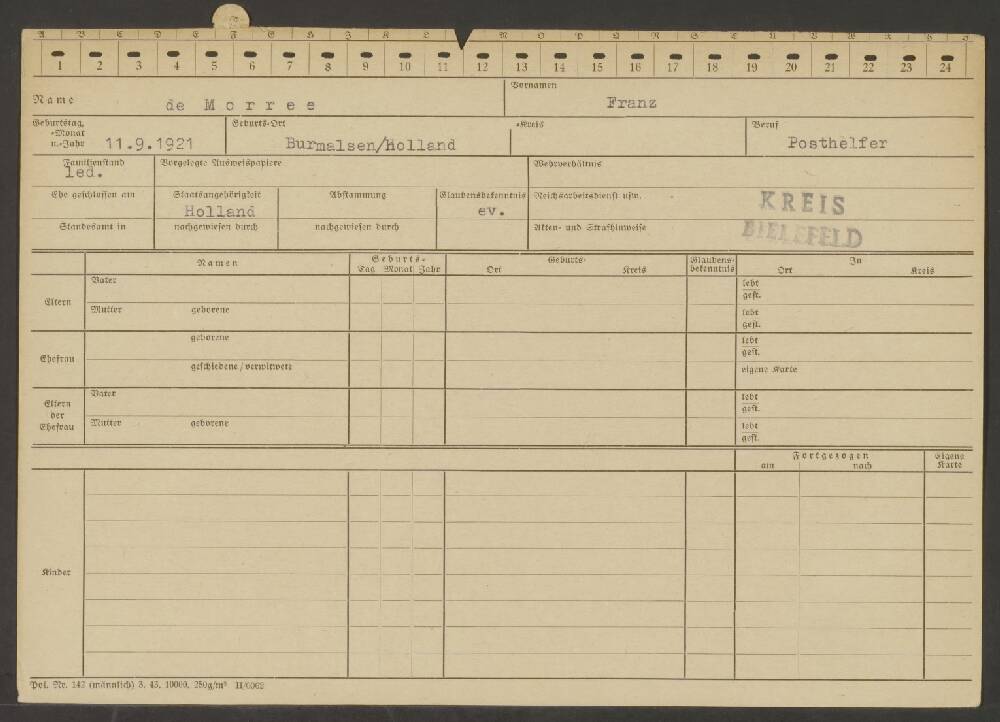 A B C D E F G H J K L M N O P Q R S T U V W X Y Z
1 2 3 4 5 6 7 8 9 10 11 12 13 14 15 16 17 18 19 20 21 22 23 24
Name de Morree
Vornamen Franz
Geburtstag, -Monat u. -Jahr 11.9.1921
Geburts-Ort Burmalsen/Holland
-Kreis
Beruf Posthelfer
Familienstand led.
Vorgelegte Ausweispapiere
Wehrverhältnis
Ehe geschlossen am
Staatsangehörigkeit Holland
Abstammung
Glaubensbekenntnis ev.
Reichsarbeitsdienst usw.
KREIS
BIELEFELD
Standesamt in
nachgewiesen durch
nachgewiesen durch
Akten- und Strafhinweise
Namen
Geburts-
Tag Monat Jahr
Geburts-
Ort Kreis
Glaubens-
bekenntnis
In
Ort Kreis
Eltern
Vater
lebt
gest.
Mutter geborene
lebt
gest.
Ehefrau
geborene
lebt
gest.
geschiedene/verwitwete
eigene Karte
Eltern
der
Ehefrau
Vater
lebt
gest.
Mutter geborene
lebt
gest.
Fortgezogen
am nach
eigene
Karte
Kinder
Pol. Nr. 142 (männlich) 3. 43. 10000. 250g/m² II/0362